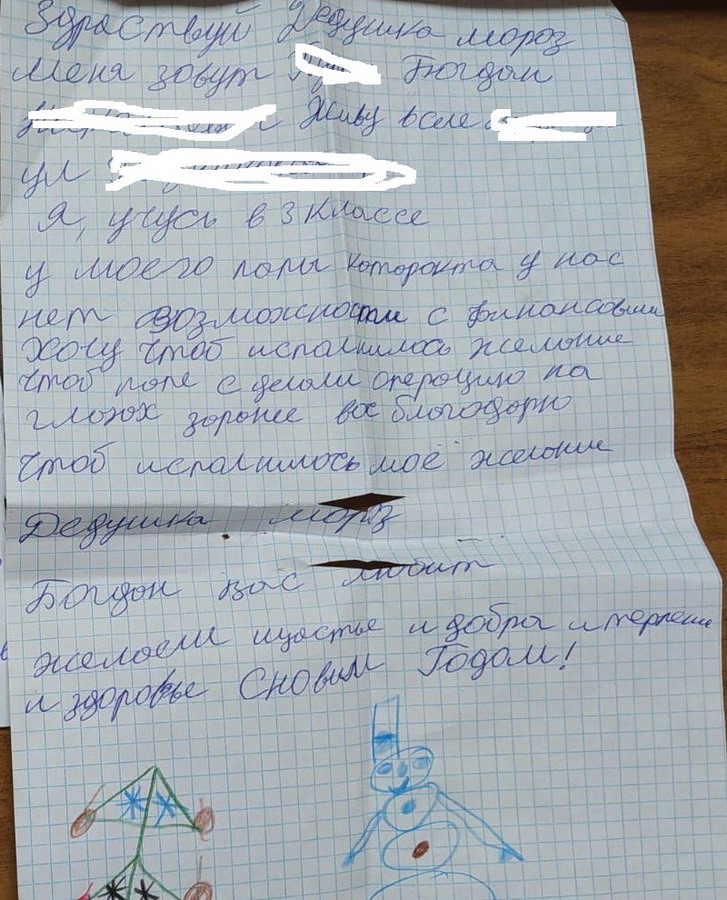 Здраствуй Дедушка мороз
Меня зовут Богдан
Живу в селе
ул
Я, учусь в 3 Классе
у моего папы которокта у нас
нет возможностти с финансовыи
Хочу чтоб испалнилось желание
чтоб папе с делали операцию на
глазах заранее вас благодарю
Чтоб испалнилось моё желание
Дедушка мороз
Богдан вас любит
желаем щастье и добра и терпени
и здоровье С Новым Годом!